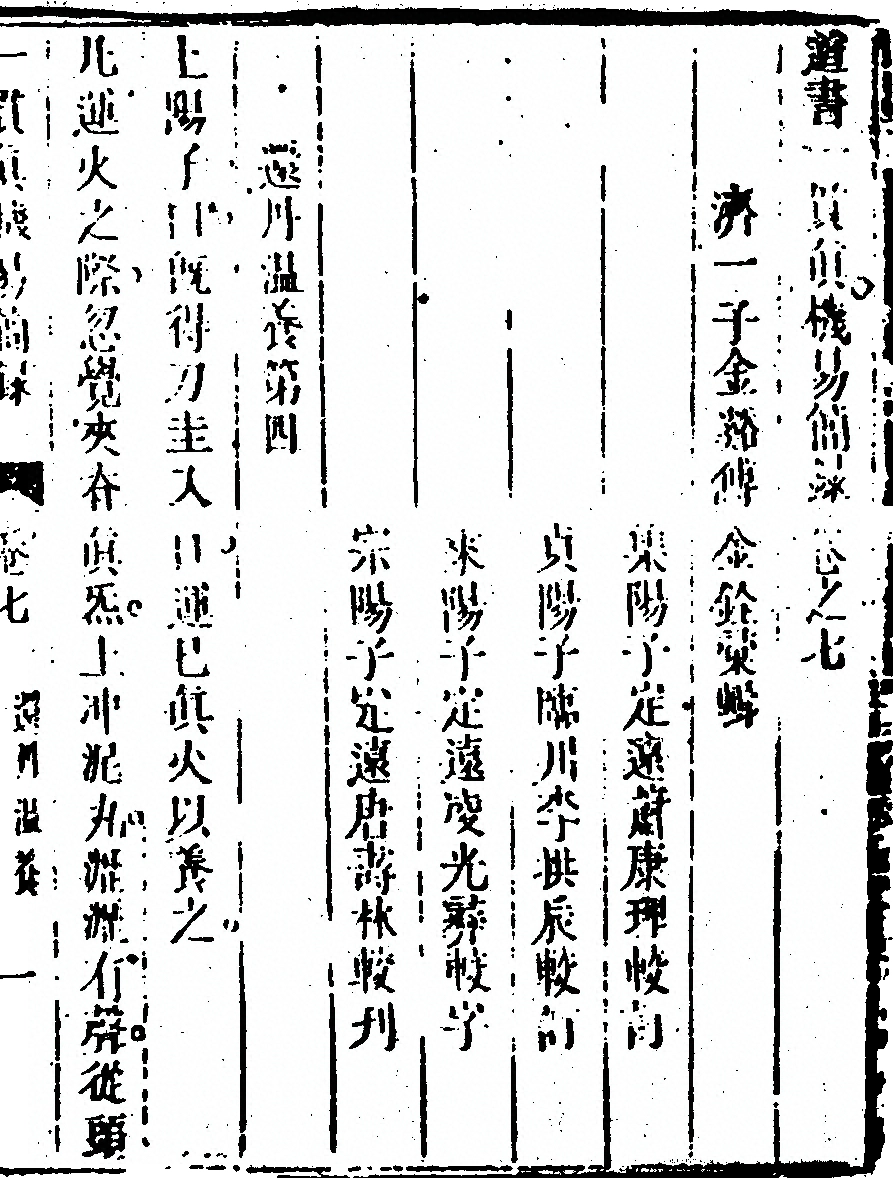 道書一貫真機易簡錄卷之七
濟一子金谿傅金銓彙輯
集陽子定遠蔚康理較訂
貞陽子臨川李拱辰較訂
來陽子定遠凌光彝較字
宗陽子定遠唐壽林較刊
還丹溫養第四
上陽子曰既得刀圭入口運己眞火以養之
凡運火之際忽覺夾脊眞炁上冲泥丸瀝瀝有聲從頭
一貫真機易簡錄 卷七 還丹溫養 一